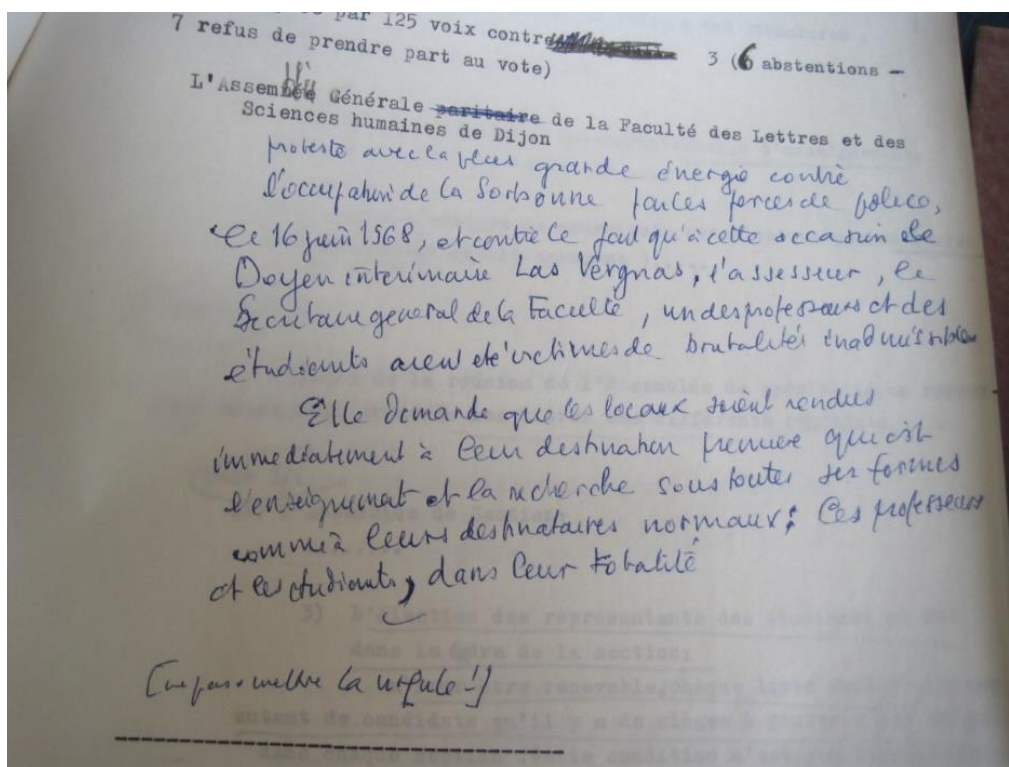 par 125 voix contre 3 (6 abstentions -
7 refus de prendre part au vote)
L'Assemblée Générale paritaire de la Faculté des Lettres et des
Sciences humaines de Dijon
proteste avec la plus grande énergie contre
l'occupation de la Sorbonne par les forces de police,
le 16 juin 1968, et contre le fait qu'à cette occasion le
Doyen interimaire Las Vergnas, l'assesseur, le
Secrétaire general de la Faculté, un des professeurs et des
étudiants aient été victimes de brutalités inadmissibles
Elle demande que les locaux soient rendus
immediatement à leur destination premiere qui est
l'enseignement et la recherche sous toutes ses formes
comme à leurs destinataires normaux : les professeurs
et les étudiants, dans leur totalité
[ne pas omettre la virgule !]
3) L'élection des représentants des étudiants
dans le cadre de la section;